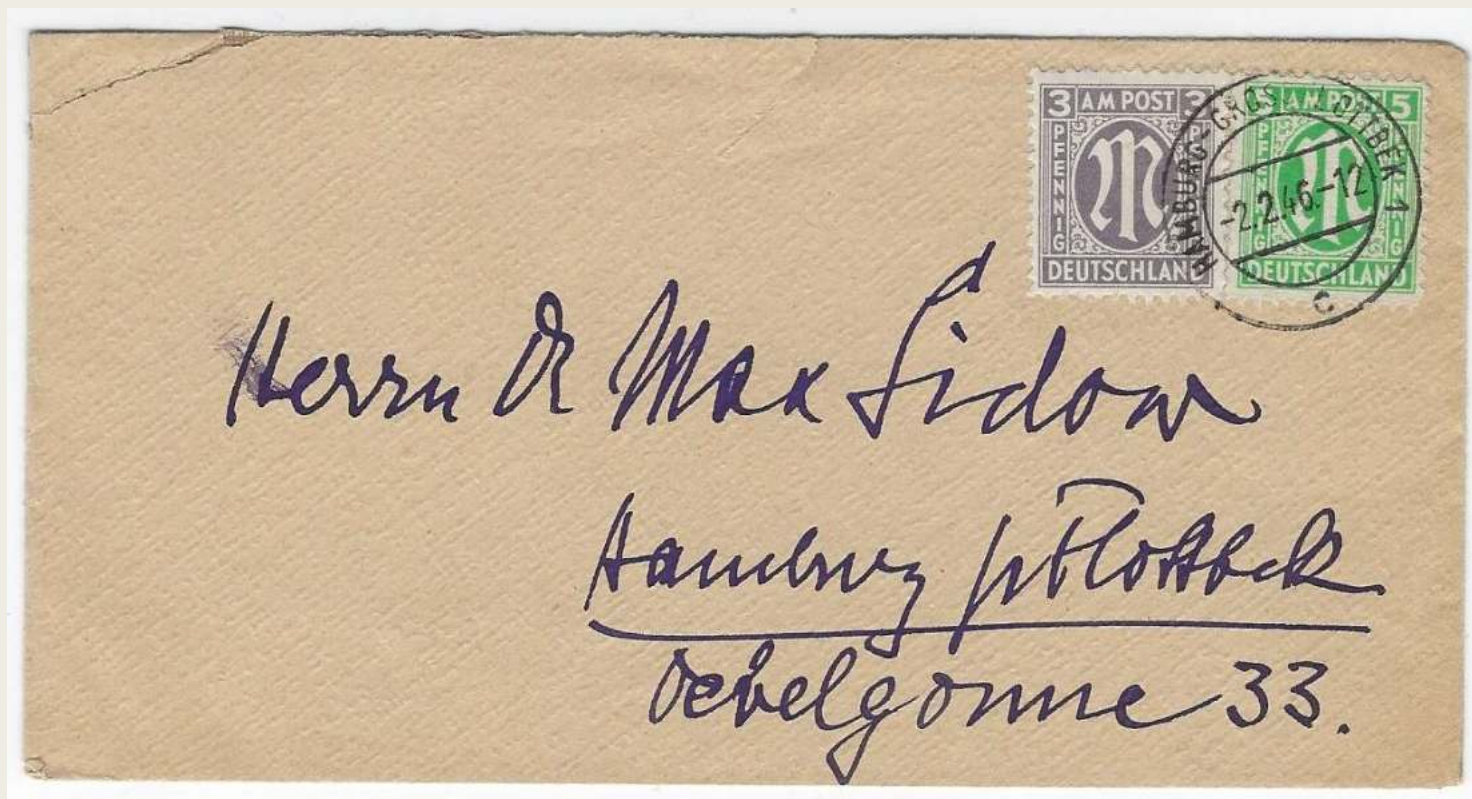 3 AM POST 3
PFENNIG
DEUTSCHLAND
5 AM POST 5
PFENNIG
DEUTSCHLAND
HAMBURG-GROSS FLOTTBEK 1
-2.2.46.-12
c
Herrn Dr Max Sidow
Hamburg Flottbek
Oevelgönne 33.